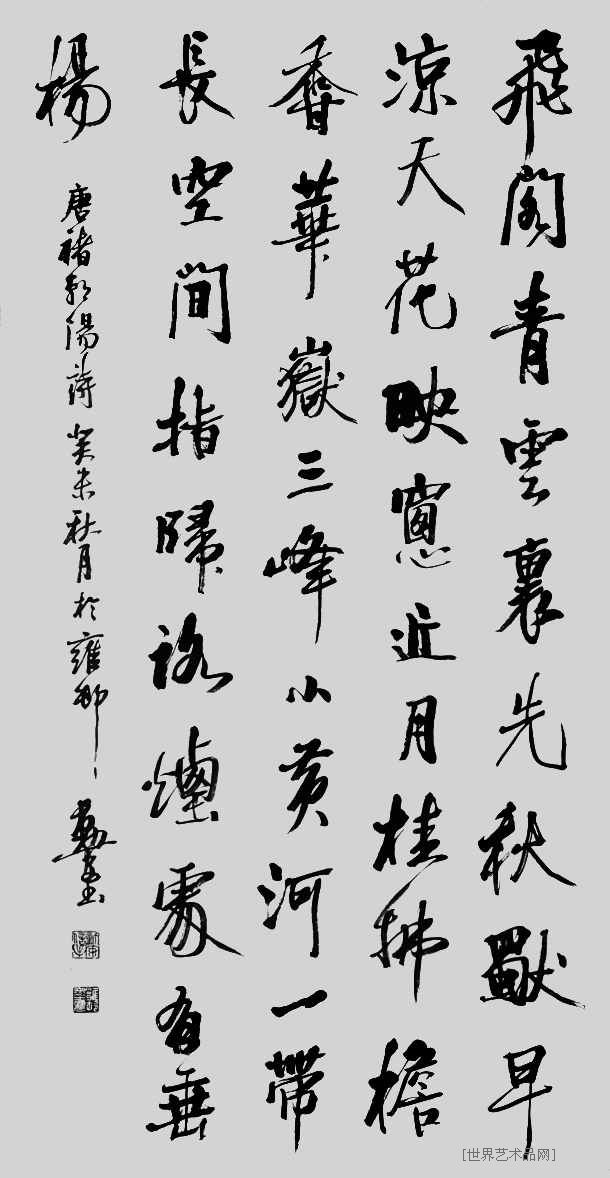 飛閣青雲裏先秋獨早
涼天花映窻近月桂拂檐
香華嶽三峰小黃河一帶
長空間指歸路煙處有垂
楊
唐褚朝陽詩癸未秋月於雍
[世界艺术品网]